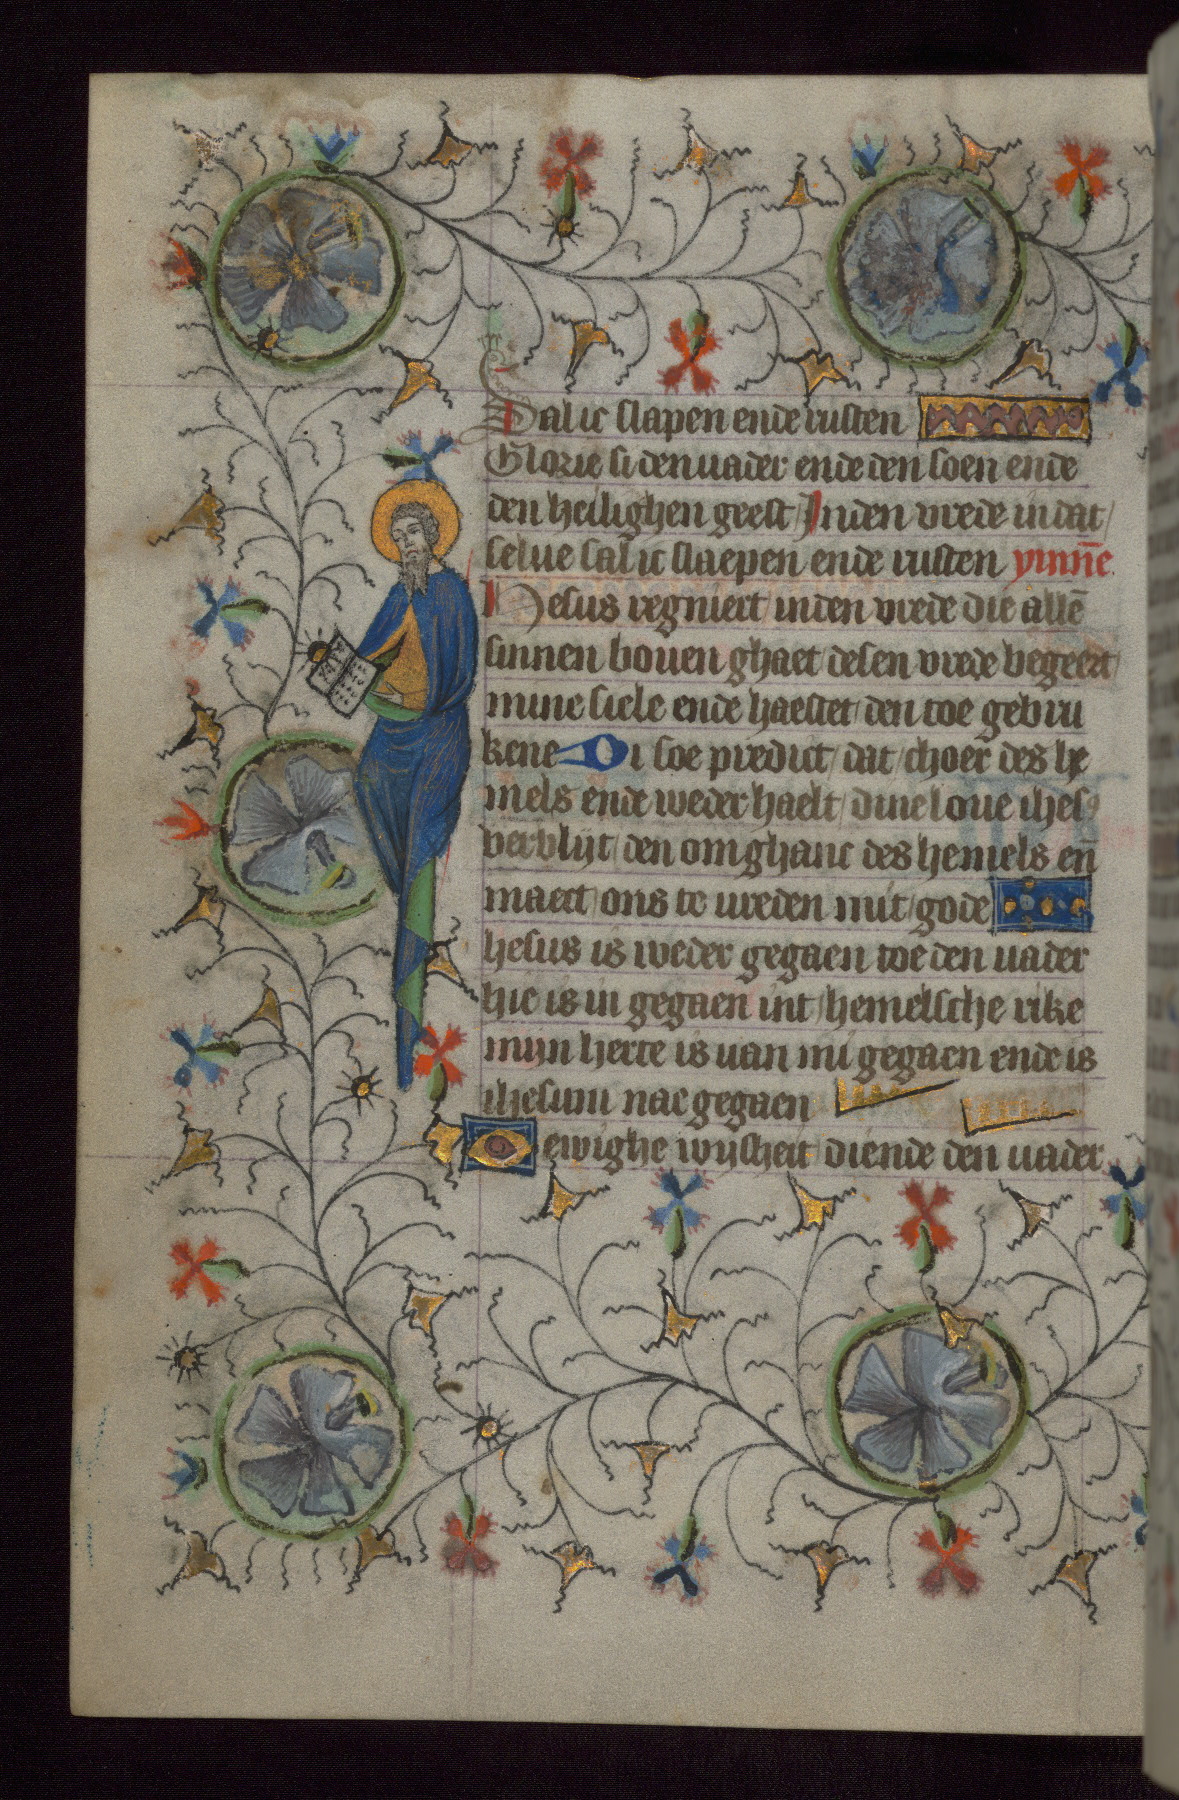 Sal ic slapen ende rusten
Glorie si den uader ende den soen ende
den heilighen geest Inden vrede in dat
selue sal ic slaepen ende rusten ymnē
Hesus regniert inden vrede die allē
sinnen bouen ghaet desen vrede begeert
mine siele ende haestet den toe gebru
kene Di soe predict dat choer des he
mels ende weder haelt dine loue ihesꝰ
verblijt den omghanc des hemels eñ
maect ons te vreden mit gode
hesus is weder gegaen toe den uader
hie is in gegaen int hemelsche rike
mijn herte is uan mi gegaen ende is
ihesum nae gegaen
O ewighe wijsheit diende den uader